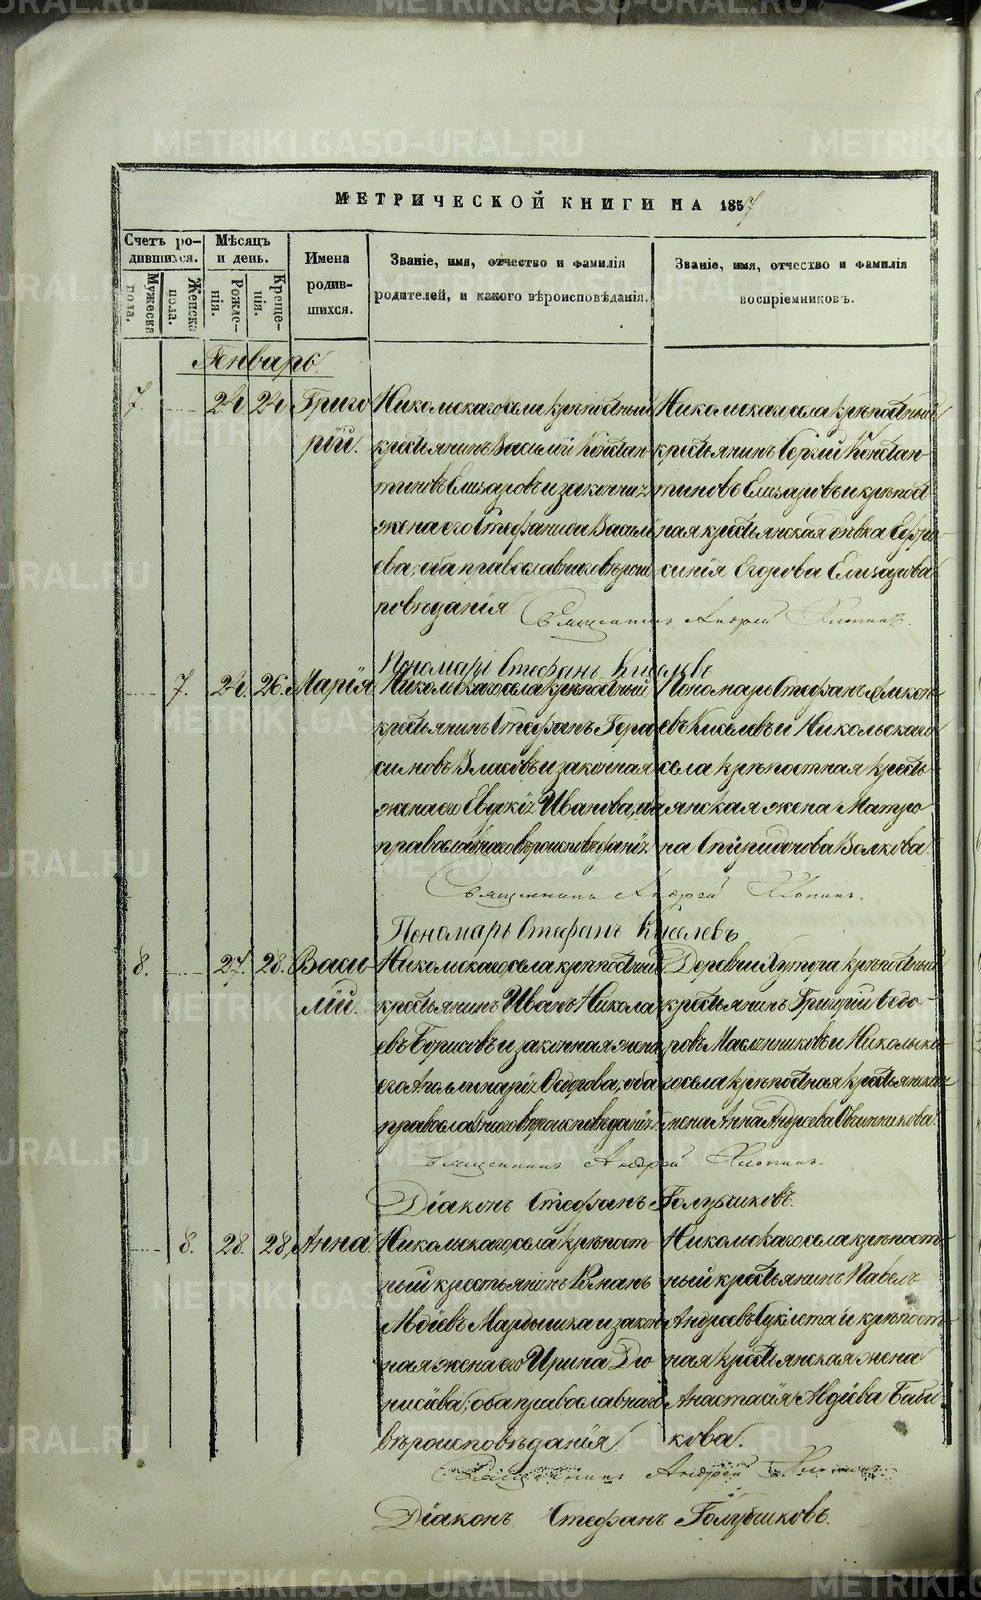 МЕТРИЧЕСКОЙ КНИГИ НА 1857
Счетъ родившихся.
Мужеска пола.
Женска пола.
Мѣсяцъ и день.
Рожденія.
Крещенія.
Имена родившихся.
Званіе, имя, отчество и фамилія
родителей, и какого вѣроисповѣданія.
Званіе, имя, отчество и фамилія
воспріемниковъ.
Генварь.
7. 24 24 Григорій.
Никольскаго села крѣпостный
крестьянинъ Василій Констан
тиновъ Елизаровъ и законная
жена его Стефанида Василь
ева, оба православнаго вѣроис
повѣданія
Никольскаго села крѣпостный
крестьянинъ Сергій Констан
тиновъ Елизаровъ и крѣпост
ная крестьянская дѣвка Евфро
синія Егорова Елизарова
Священникъ Андрей
Пономарь Стефанъ Киселевъ
7. 24. 26. Марія
Никольскаго села крѣпостный
крестьянинъ Стефанъ Гера
симовъ Власовъ и законная
жена его Евдокія Иванова, оба
православнаго вѣроисповѣданія
Пономарь Стефанъ Алексѣ
евъ Киселевъ и Никольскаго
села крѣпостная кресть
янская жена Матро
на Спиридонова Волкова.
Священникъ Андрей
Пономарь Стефанъ Киселевъ
8. 27. 28. Василій.
Никольскаго села крѣпостный
крестьянинъ Иванъ Никола
евъ Борисовъ и законная жена
его Аполлинарія Ѳедорова, оба
православнаго вѣроисповѣданія.
Деревни Хутора крѣпостный
крестьянинъ Григорій Ѳедо-
ровъ Масленниковъ и Никольска
го села крѣпостная крестьянская
жена Анна Андреева Овчинникова.
Священникъ Андрей
Діаконъ Стефанъ Голубчиковъ.
8. 28. 28. Анна
Никольскаго села крѣпост
ный крестьянинъ
и закон
ная жена его Ирина Дio
нисіева, оба православнаго
вѣроисповѣданія.
Никольскаго села крѣпост
ный крестьянинъ Павелъ
Андреевъ и крѣпост
ная крестьянская жена
Анастасія Авдіева Баби
кова.
Священникъ Андрей
Діаконъ Стефанъ Голубчиковъ.
METRIKI.GASO-URAL.RU